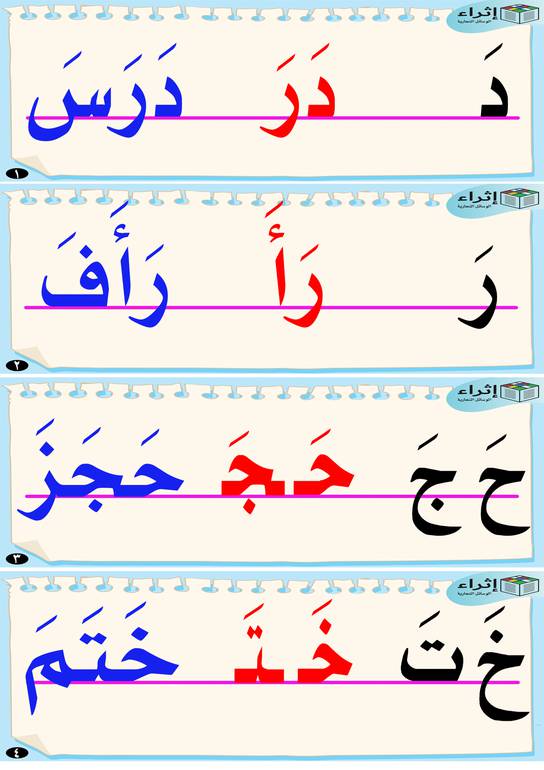 إثراء
الوسائل التعليمية
دَ دَرَ دَرَسَ
١
إثراء
الوسائل التعليمية
رَ رَأَ رَأَفَ
٢
إثراء
الوسائل التعليمية
حَ جَ حَـ جَـ حَجَزَ
٣
إثراء
الوسائل التعليمية
خَ تَ خَـ تَـ خَتَمَ
٤